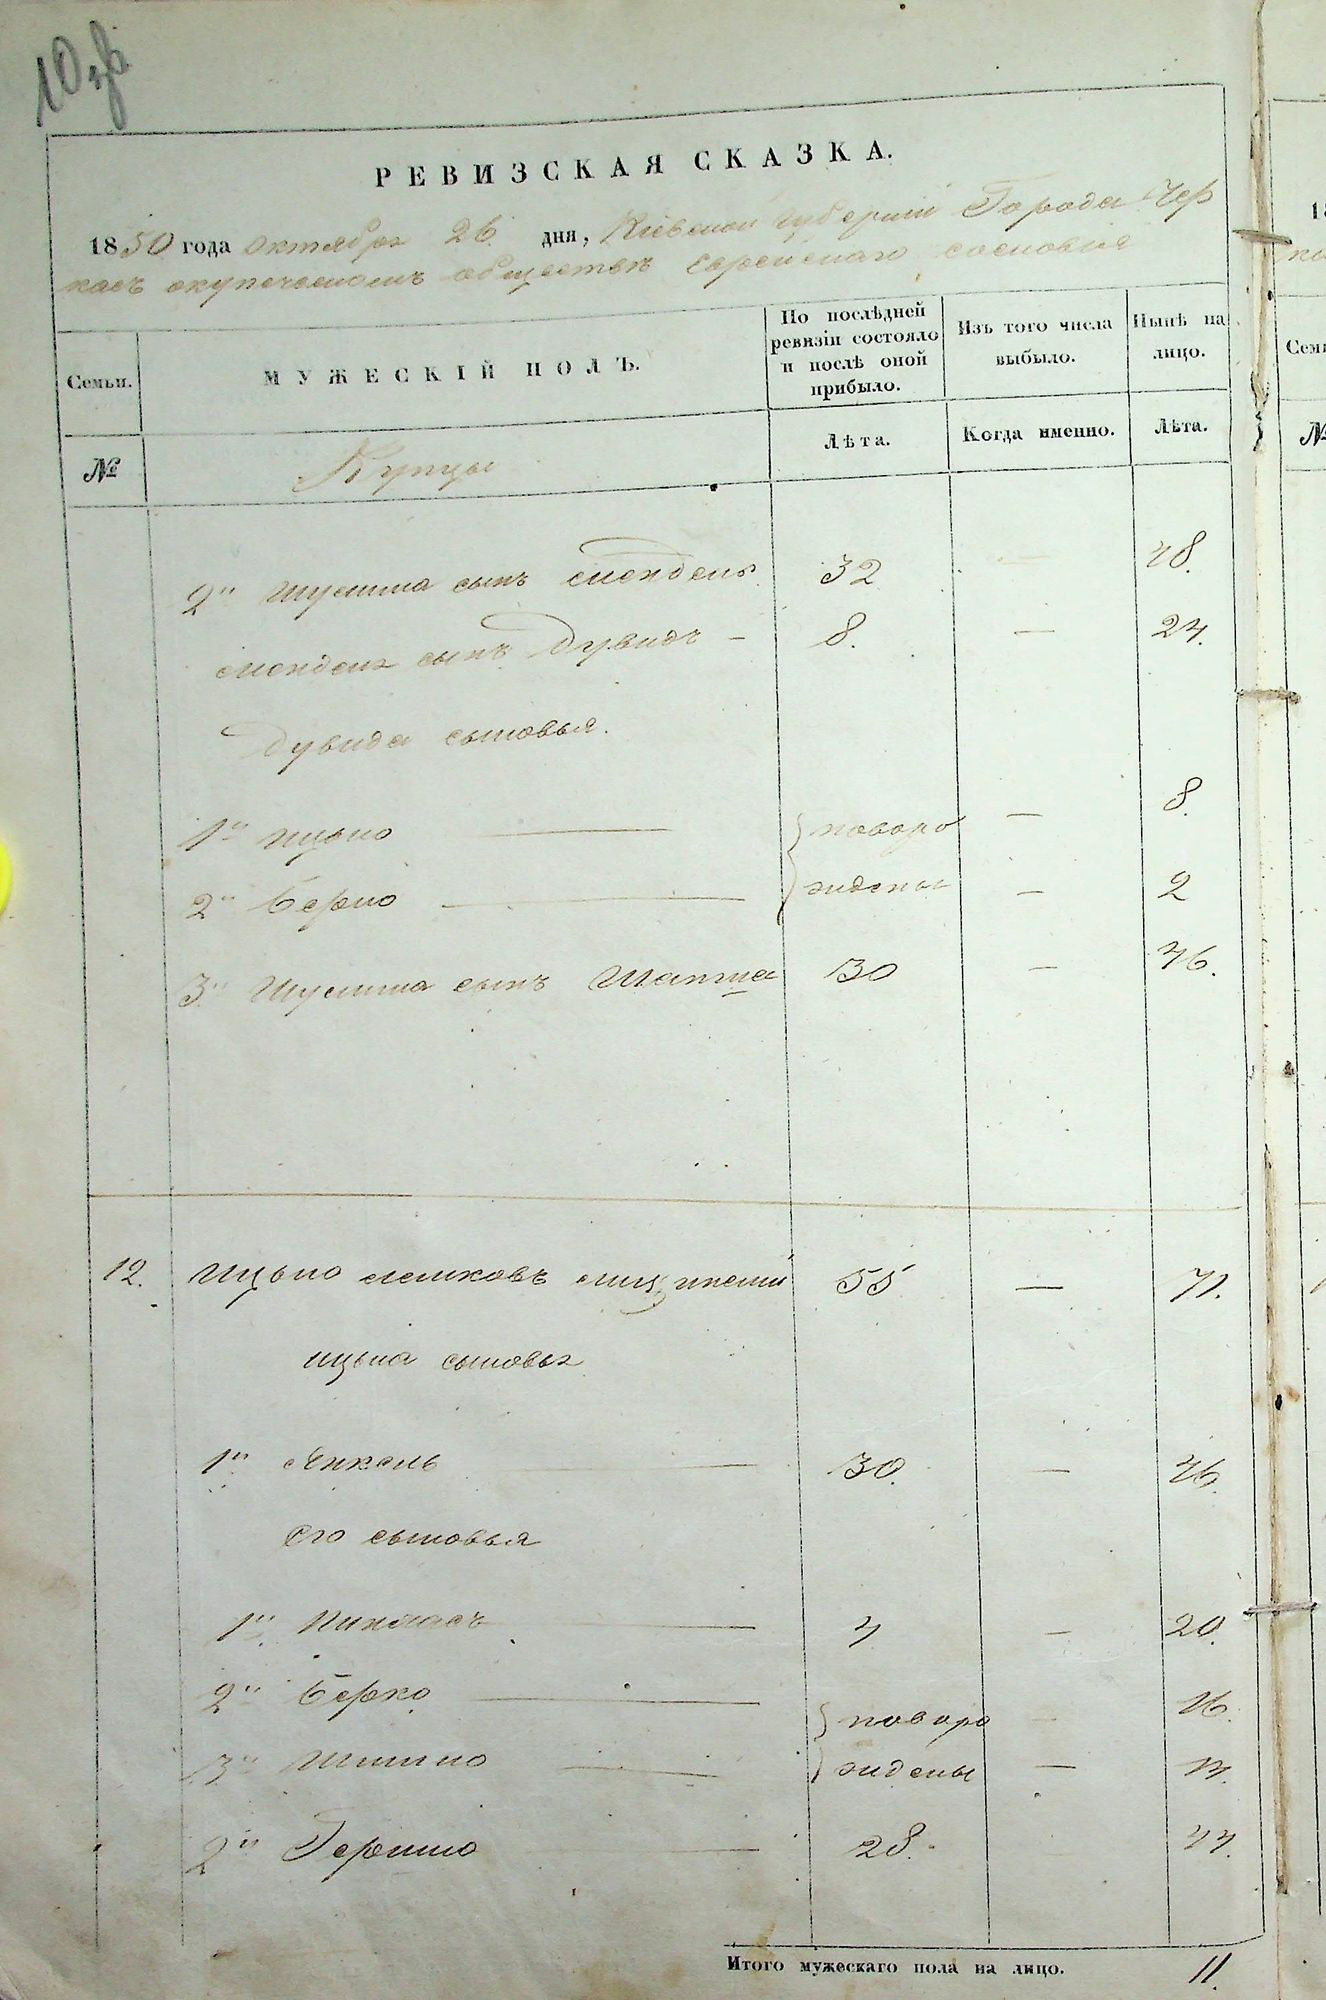 10 об
РЕВИЗСКАЯ СКАЗКА.
1850 года октября 26 дня, Киевской губернии Города Чер
касъ окупеческомъ обществѣ еврейскаго сословія
Семьи.
МУЖЕСКІЙ ПОЛЪ.
По послѣдней ревизіи состояло и послѣ оной прибыло.
Изъ того числа выбыло.
Нынѣ на лицо.
№
Купцы
Лѣта.
Когда именно.
Лѣта.
2й Шулима сынъ Мендель 32 — 48.
Менделя сынъ Дувидъ — 8. — 24.
Дувида сыновья.
1й Ицько — новоро — 8.
2й Берко — жденые — 2
3й Шулима сынъ 30 — 46.
12. Ицько 55 — 71.
Ицька сыновья
1й Янкель — 30. — 46.
Его сыновья
1й Пинхасъ — 4 — 20.
2й Берко — новоро — 16.
3й — ждены — 13.
2й Гершко — 28. 44.
Итого мужескаго пола на лицо. 11.